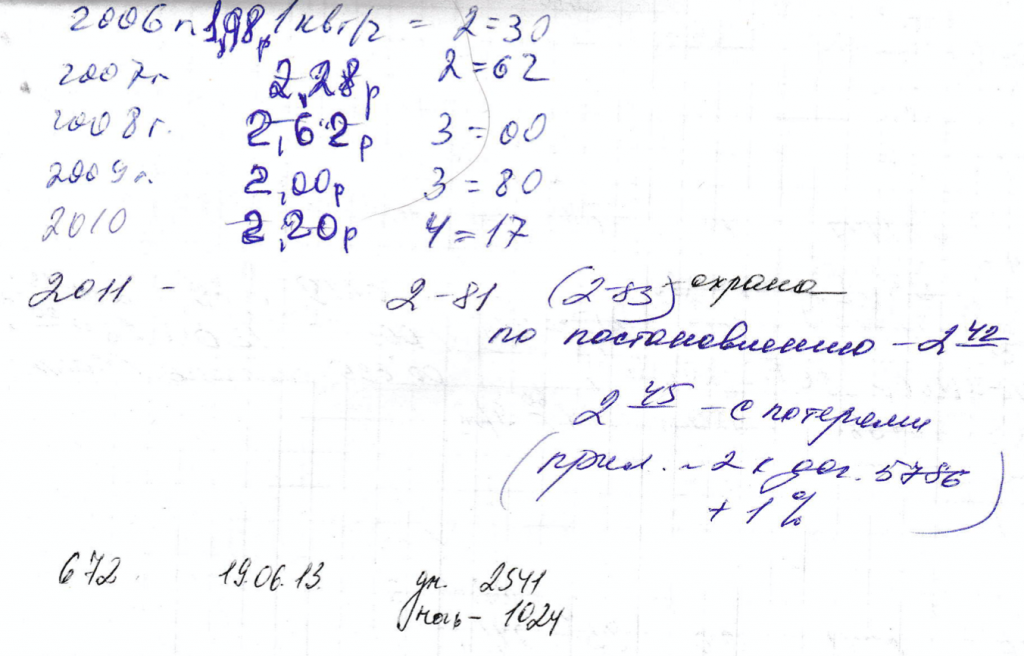 2006 г 1,98р 1 квт/ч = 2=30
2007г. 2,28р 2=62
2008г. 2,62р 3=00
2009г. 2,00р 3=80
2010 2,20р 4=17
2011 - 2-81 (2-83) - охрана
по постановлению - 2 42
2 45 - с потерями
(прил. ~ 2 к дог. 5786
+ 1%)
672 19.06.13. дн. 2541
ночь - 1024